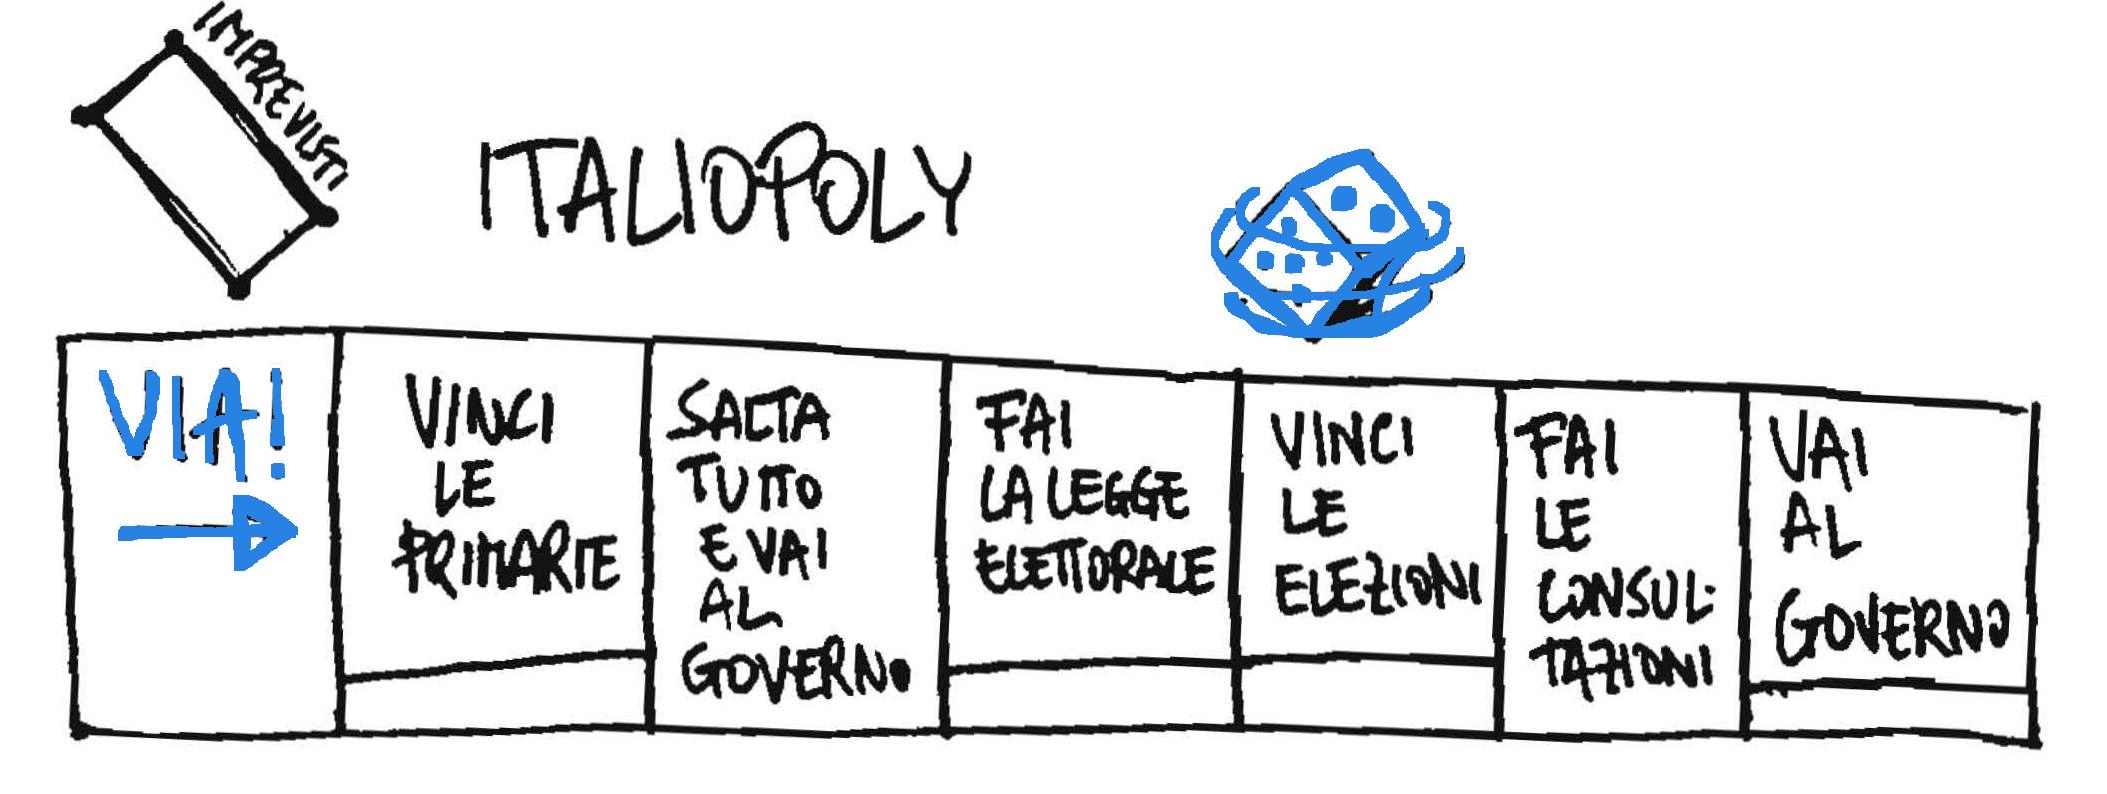 IMPREVISTI
ITALIOPOLY
VIA!
VINCI
LE
PRIMARIE
SALTA
TUTTO
E VAI
AL
GOVERNO
FAI
LA LEGGE
ELETTORALE
VINCI
LE
ELEZIONI
FAI
LE
CONSUL-
TAZIONI
VAI
AL
GOVERNO